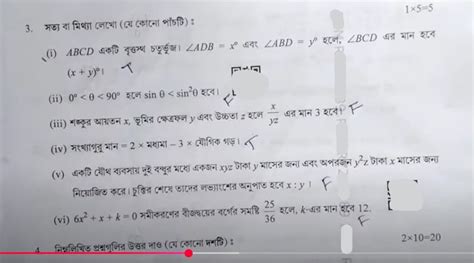 1×5=5
3. সত্য বা মিথ্যা লেখো (যে কোনো পাঁচটি) :
(i) ABCD একটি বৃত্তস্থ চতুর্ভুজ। ∠ADB = x° এবং ∠ABD = y° হলে, ∠BCD এর মান হবে
(x + y)°। T
(ii) 0° < θ < 90° হলে sin θ < sin²θ হবে। F
(iii) শঙ্কুর আয়তন x, ভূমির ক্ষেত্রফল y এবং উচ্চতা z হলে x/yz এর মান 3 হবে। F
(iv) সংখ্যাগুরু মান = 2 × মধ্যমা – 3 × যৌগিক গড়। F
(v) একটি যৌথ ব্যবসায় দুই বন্ধুর মধ্যে একজন xyz টাকা y মাসের জন্য এবং অপরজন y²z টাকা x মাসের জন্য
নিয়োজিত করে। চুক্তির শেষে তাদের লভ্যাংশের অনুপাত হবে x : y। F
(vi) 6x² + x + k = 0 সমীকরণের বীজদ্বয়ের বর্গের সমষ্টি 25/36 হলে, k-এর মান হবে 12. F
4. নিম্নলিখিত প্রশ্নগুলির উত্তর দাও (যে কোনো দশটি) :
2×10=20